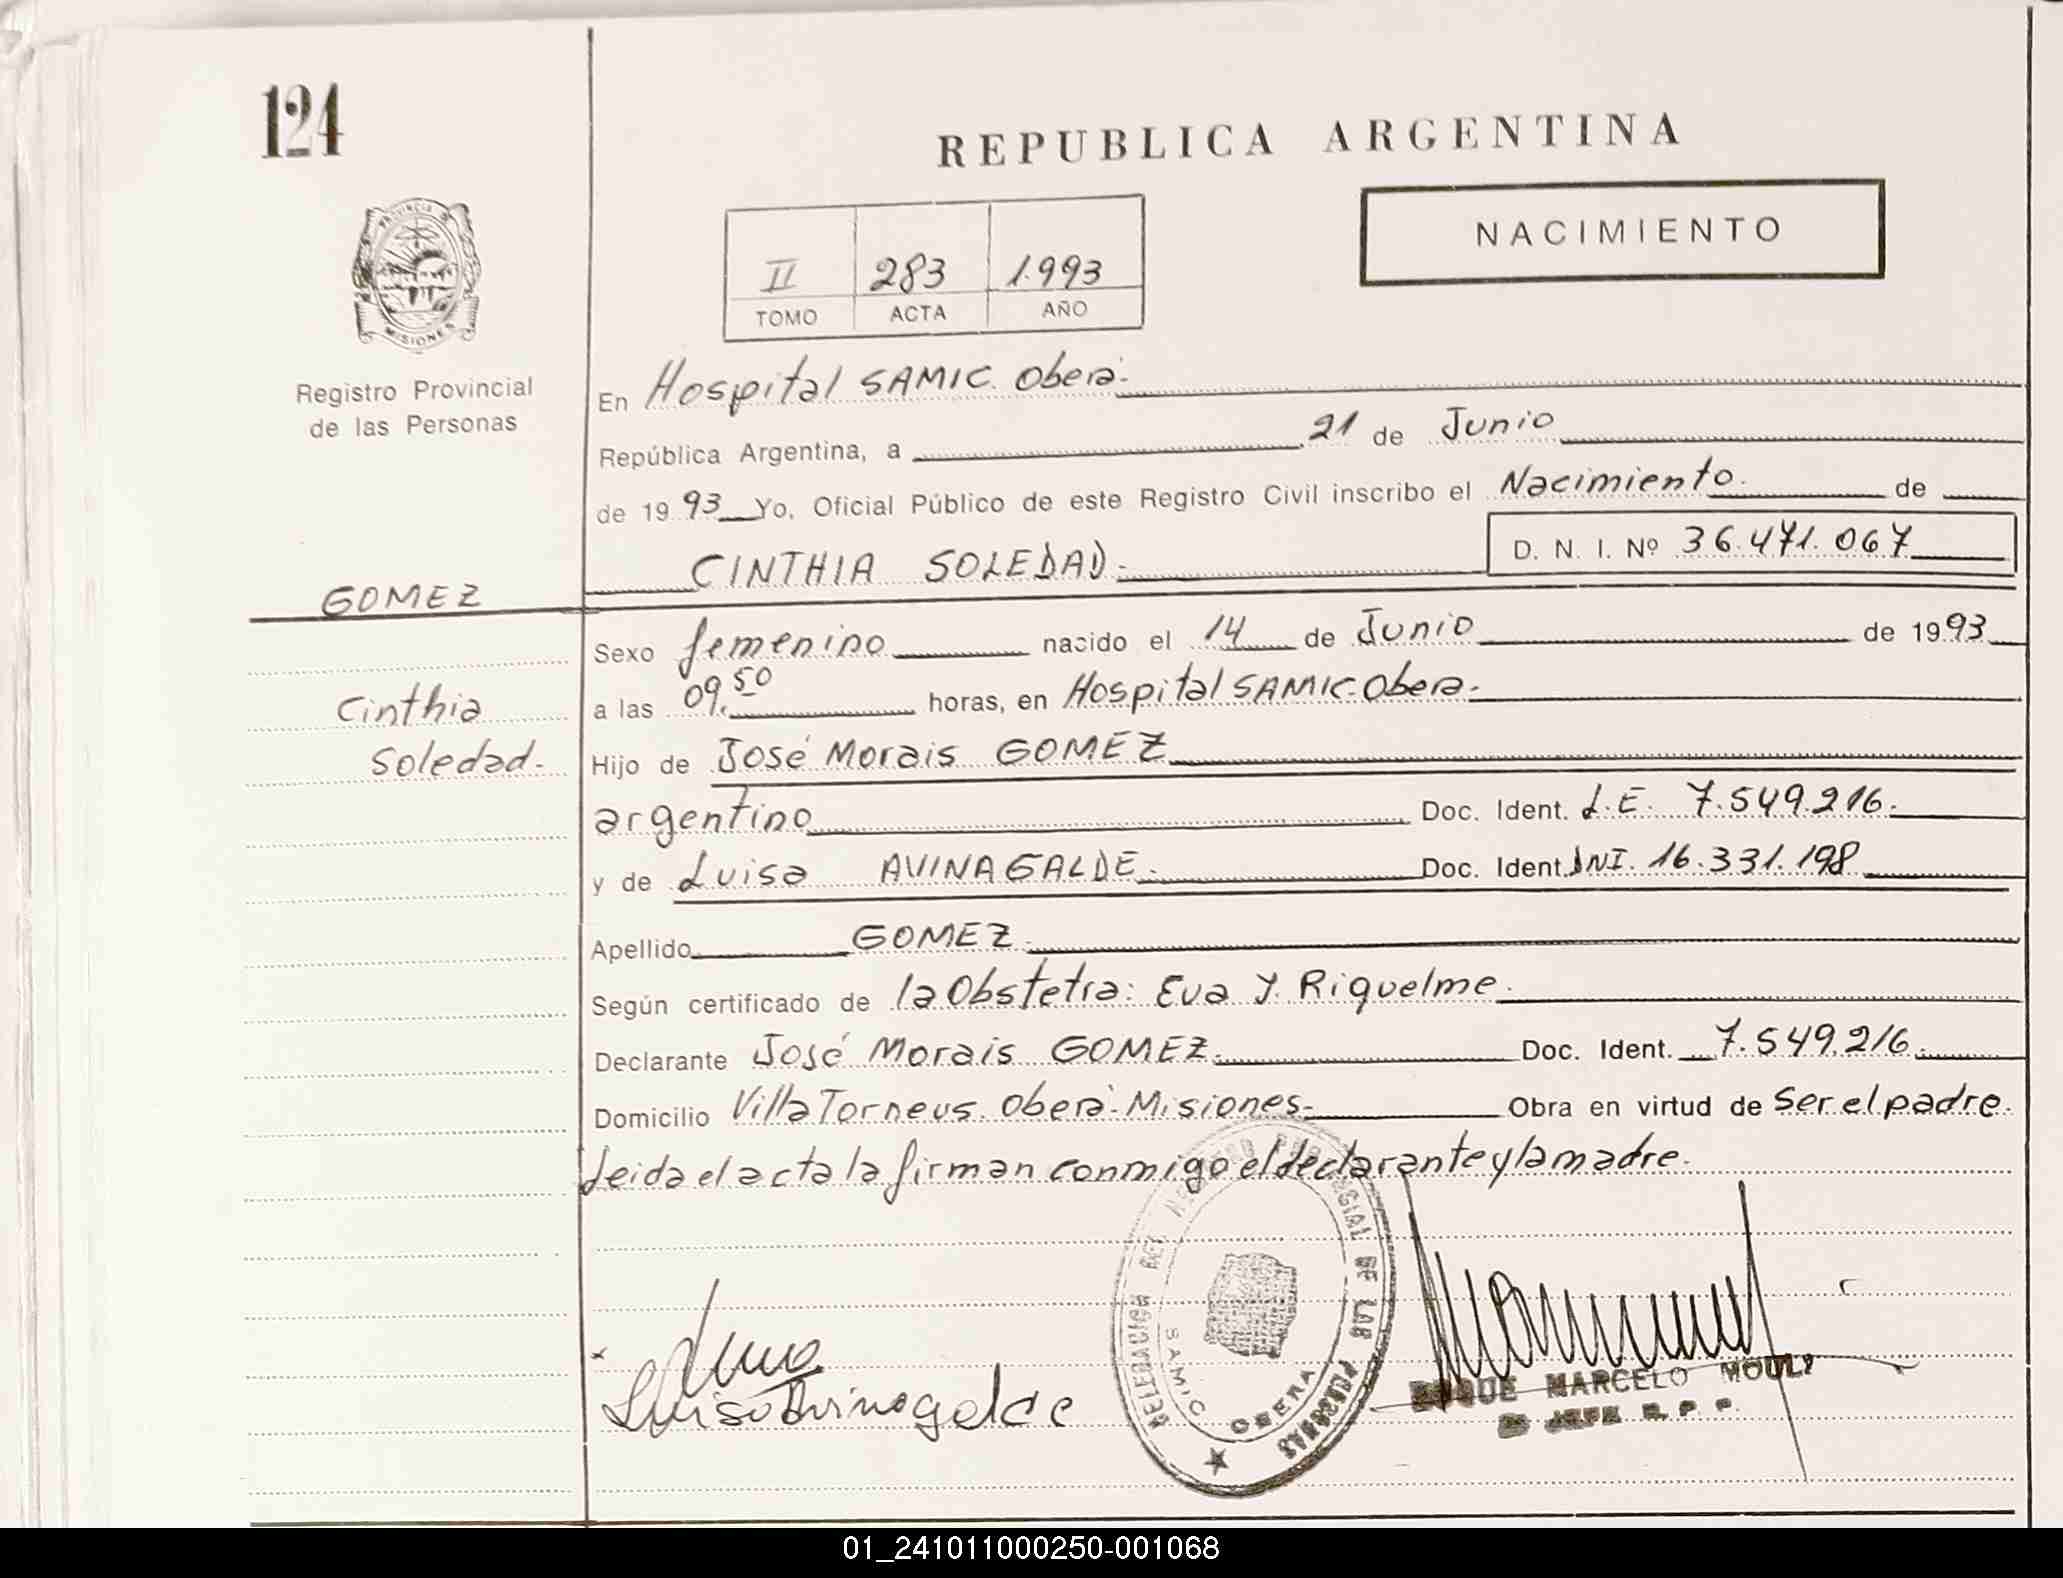 124
REPUBLICA ARGENTINA
NACIMIENTO
PROVINCIA D
MISIONES
Registro Provincial
de las Personas
II 283 1.993
TOMO ACTA AÑO
En Hospital SAMIC. Oberá.
República Argentina, a 21 de Junio
de 1993 Yo, Oficial Público de este Registro Civil inscribo el Nacimiento. de
CINTHIA SOLEDAD.
D. N. I. Nº 36.471.067
GOMEZ
Cinthia
Soledad.
Sexo femenino nacido el 14 de Junio de 1993
a las 09.50 horas, en Hospital SAMIC. Obera.
Hijo de José Morais GOMEZ
argentino Doc. Ident. L.E. 7.549.216.
y de Luisa AVINAGALDE. Doc. Ident. DNI. 16.331.198
Apellido GOMEZ.
Según certificado de la Obstetra: Eva Y. Riquelme.
Declarante José Morais GOMEZ. Doc. Ident. 7.549.216.
Domicilio Villa Torneus. Oberá. Misiones. Obra en virtud de Ser el padre.
Leida el acta la firman conmigo el declarante y la madre.
DELEGACION DEL REGISTRO PROVINCIAL DE LAS PERSONAS
SAMIC OBERA
Luisa Avinagalde
ROQUE MARCELO MOULI
JEFE R. P. P.
01_241011000250-001068